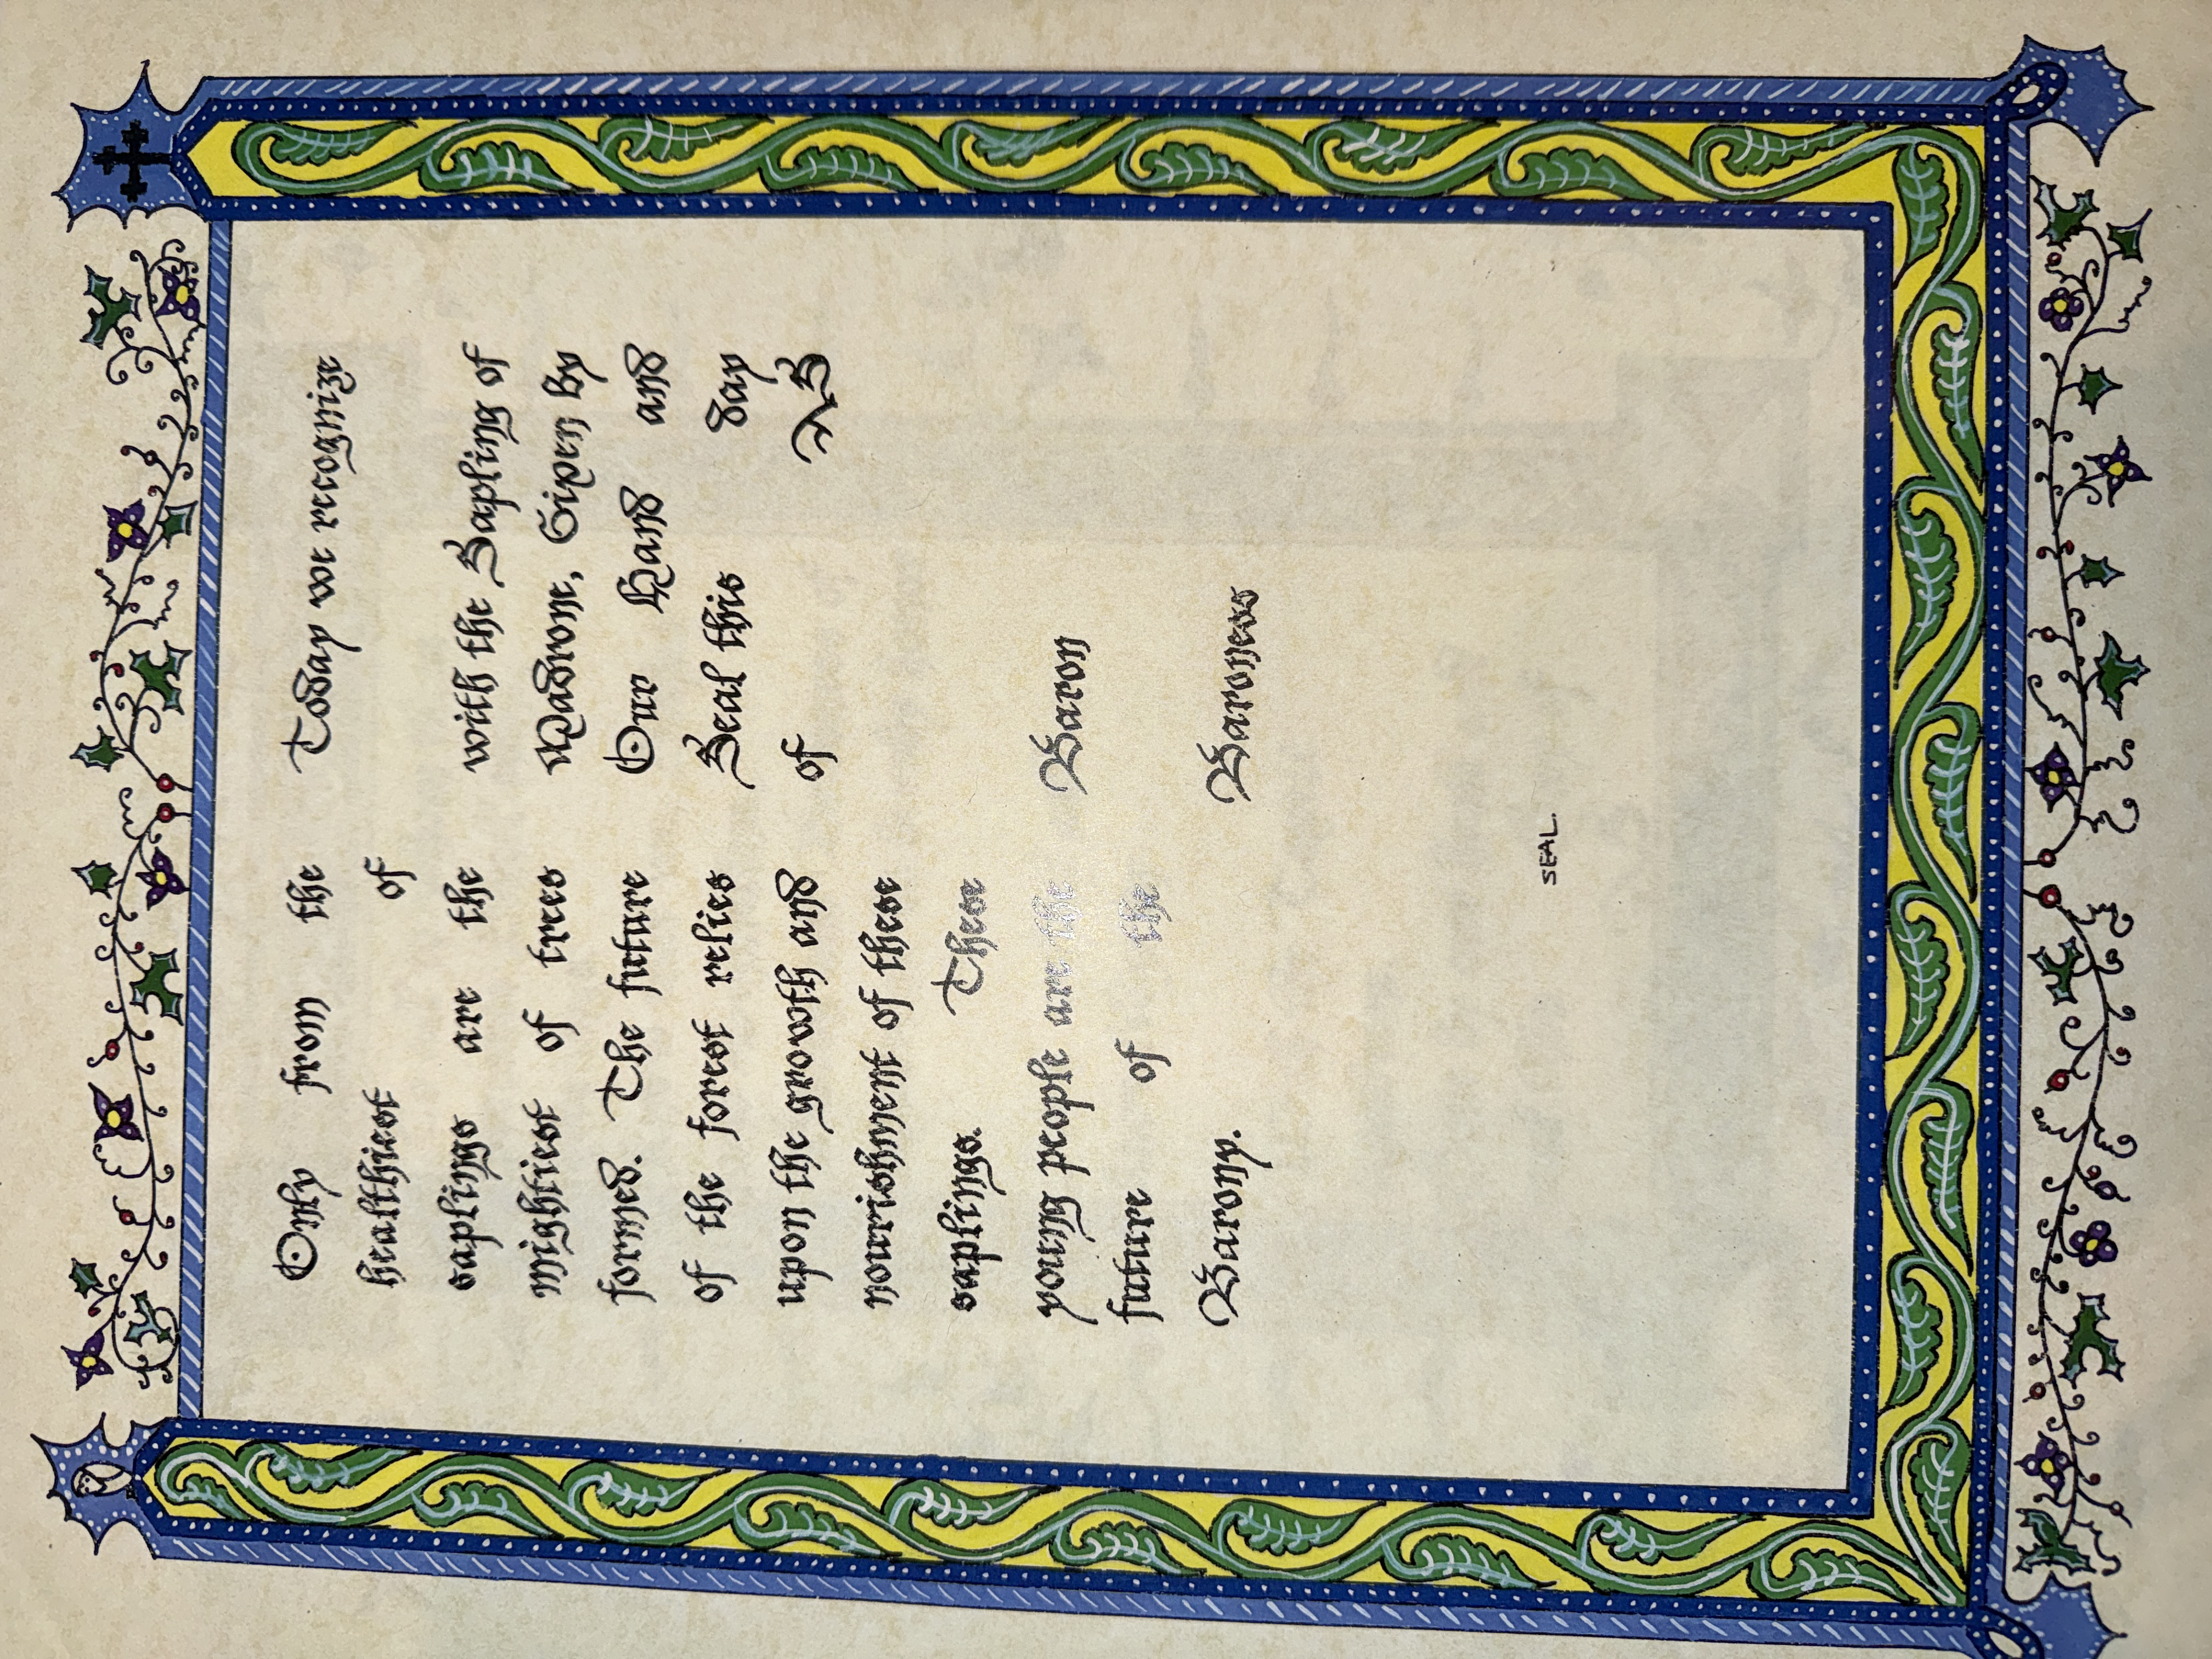 Only from the
healthiest of
saplings are the
mightiest of trees
formed. The future
of the forest relies
upon the growth and
nourishment of these
saplings. These
young people are the
future of the
Barony.
Today we recognize
with the Sapling of
Madrone, Given By
Our Hand and
Seal this day
of AS
Baron
Baroness
SEAL.